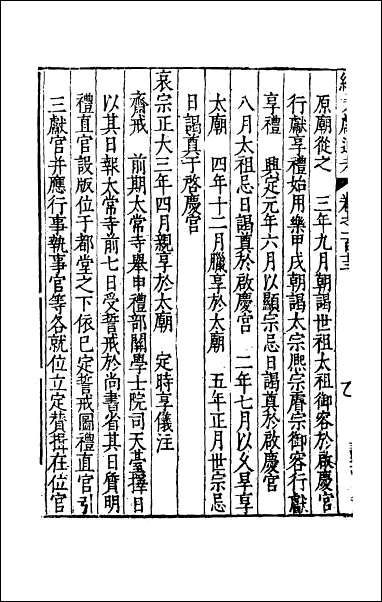 原廟從之　三年九月朝謁世祖太祖御容於啟慶宮
行獻享禮始用樂甲戌朝謁太宗熙宗睿宗御容行獻
享禮　興定元年六月以顯宗忌日謁真於啟慶宮
八月太祖忌日謁真於啟慶宮　二年七月以久旱享
太廟　四年十二月臘享於太廟　五年正月世宗忌
日謁真于啓慶宮
哀宗正大三年四月親享於太廟　定時享儀注
齋戒　前期太常寺舉申禮部關學士院司天臺擇日
以其日報太常寺前七日受誓戒於尚書省其日質明
禮直官設版位于都堂之下依已定誓戒圖禮直官引
三獻官并應行事執事官等各就位立定贊揖在位官